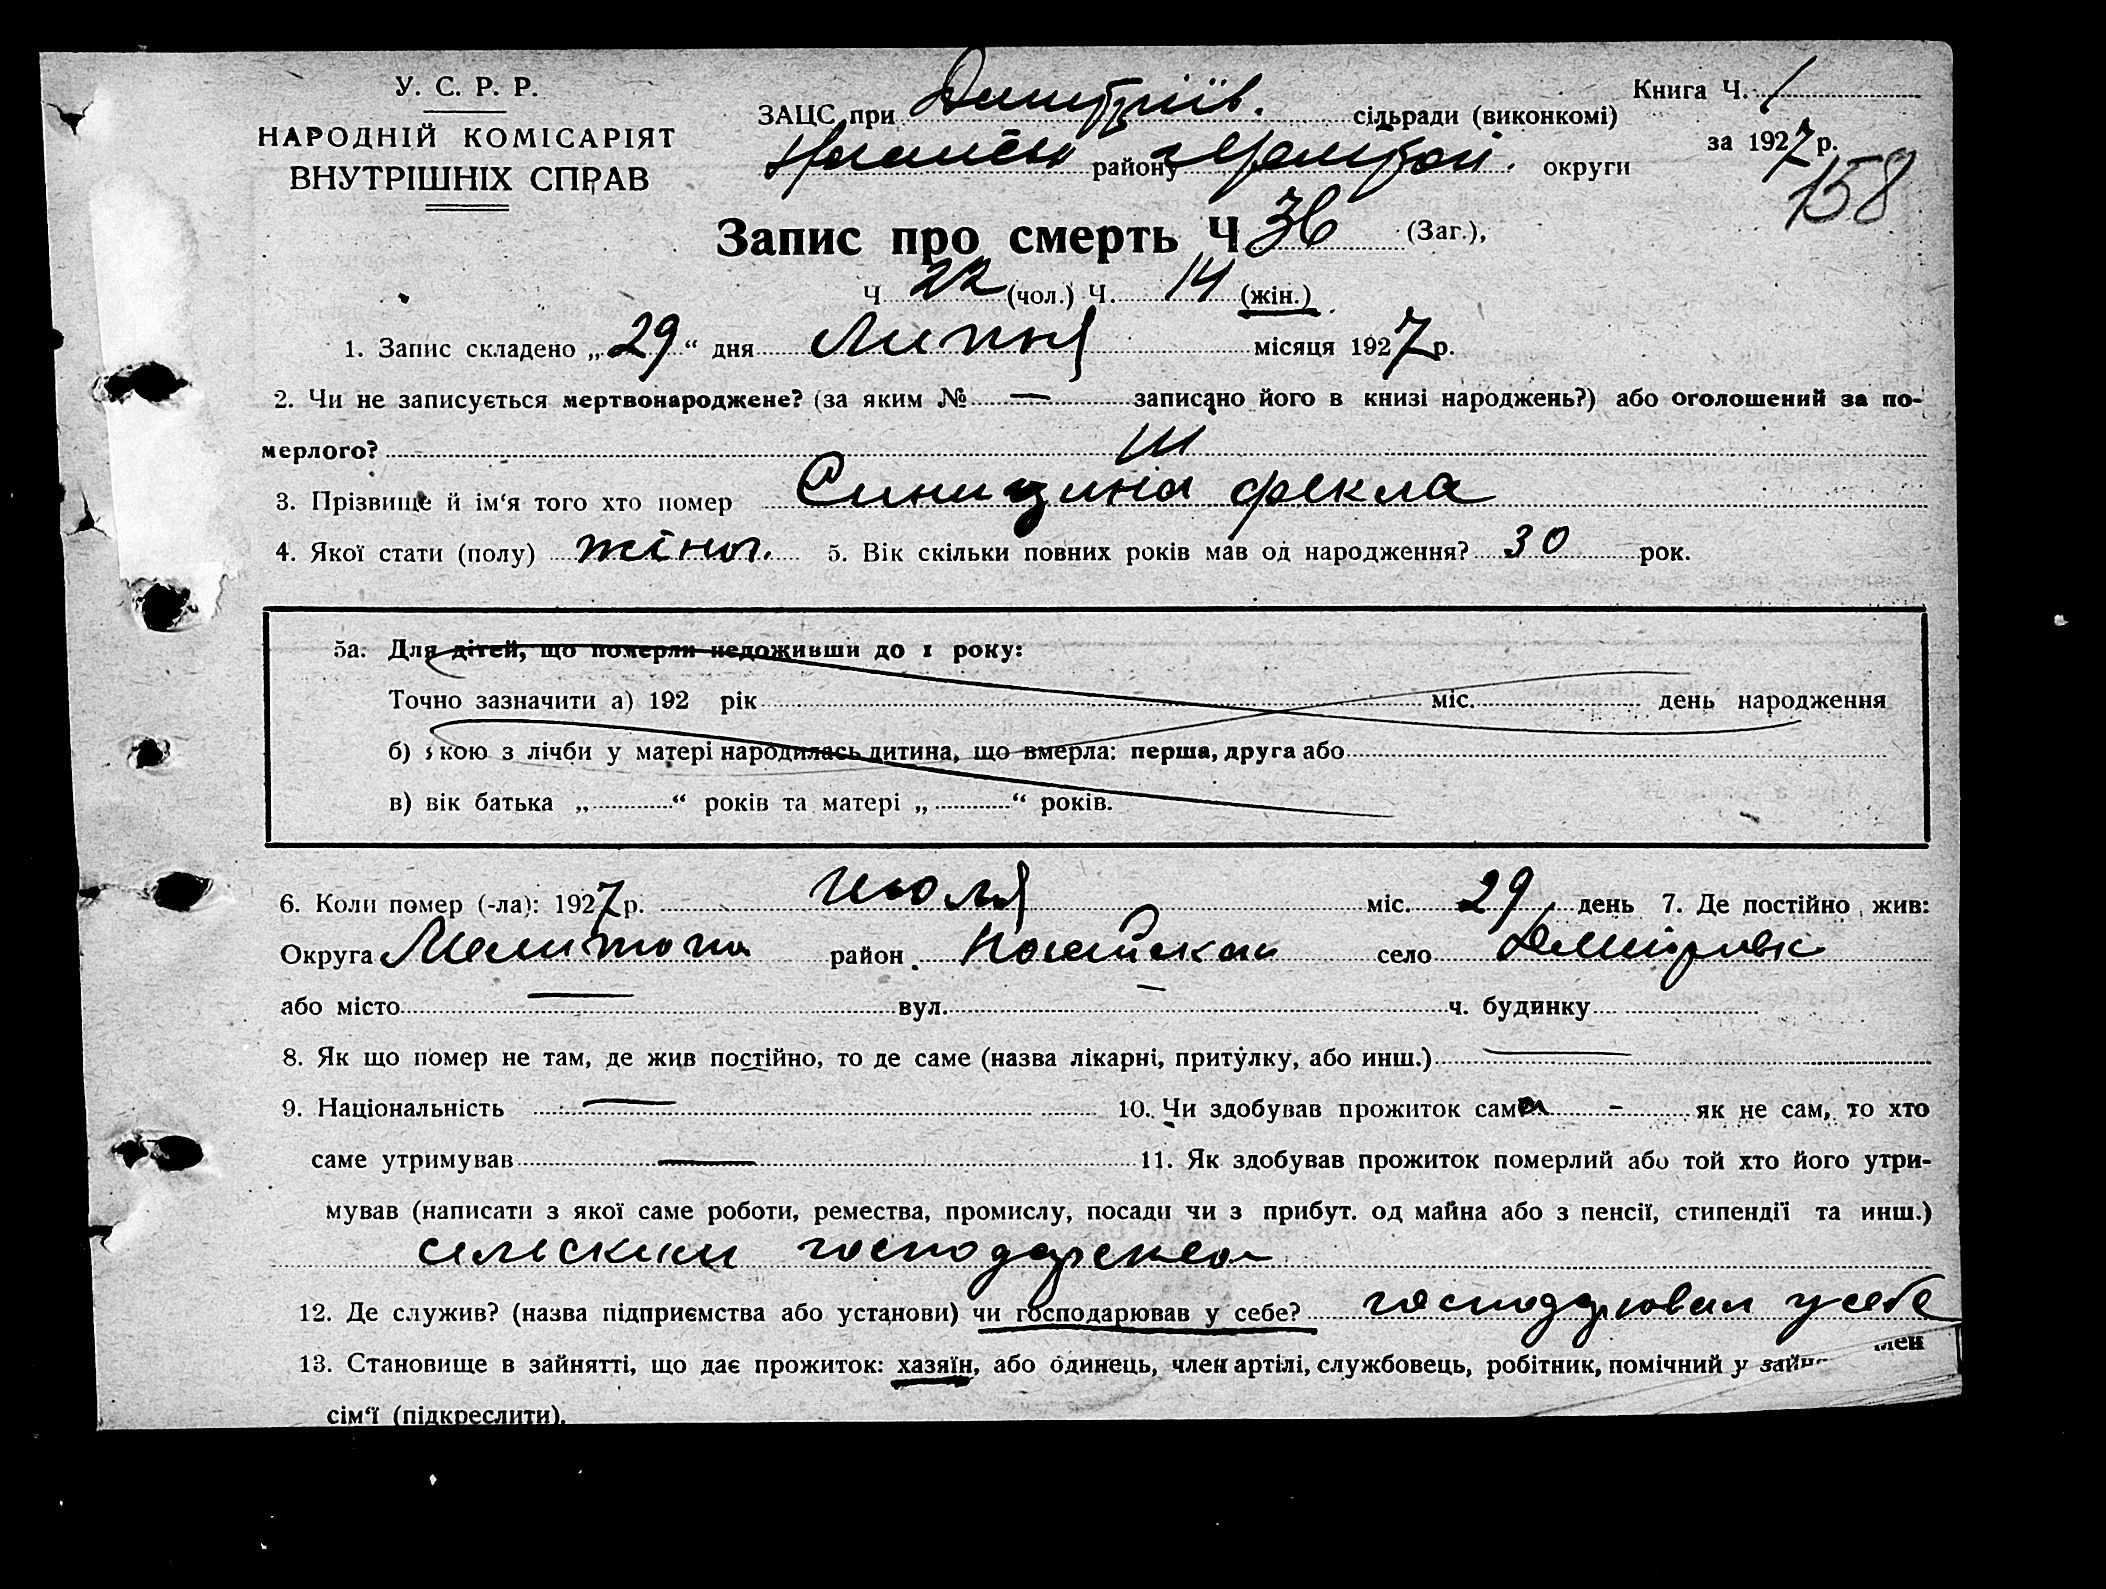 У. С. Р. Р.
НАРОДНІЙ КОМІСАРІЯТ
ВНУТРІШНІХ СПРАВ
ЗАЦС при Дмитріїв. сільради (виконкомі)
району округи
Книга Ч. 1
за 1927 р.
158
Запис про смерть Ч 36 (Заг.),
Ч 22 (чол.) Ч. 14 (жін.)
1. Запис складено „29“ дня Липня місяця 1927 р.
2. Чи не записується мертвонароджене? (за яким № — записано його в книзі народжень?) або оголошений за по-
мерлого?
3. Прізвище й ім‘я того хто помер Синицина Фекла
4. Якої стати (полу) жіноч. 5. Вік скільки повних років мав од народження? 30 рок.
5а. Для дітей, що померли недоживши до 1 року:
Точно зазначити а) 192 рік міс. день народження
б) якою з лічби у матері народилась дитина, що вмерла: перша, друга або
в) вік батька „ “ років та матері „ “ років.
6. Коли помер (-ла): 1927 р. июля міс. 29 день 7. Де постійно жив:
Округа Мелитопо район село Дмитрівк
або місто — вул. — ч. будинку
8. Як що помер не там, де жив постійно, то де саме (назва лікарні, притулку, або инш.) —
9. Національність — 10. Чи здобував прожиток сама - як не сам, то хто
саме утримував — 11. Як здобував прожиток померлий або той хто його утри-
мував (написати з якої саме роботи, ремества, промислу, посади чи з прибут. од майна або з пенсії, стипендії та инш.)
сільским господарством
12. Де служив? (назва підприємства або установи) чи господарював у себе? господарювал у себе
13. Становище в зайнятті, що дає прожиток: хазяїн, або одинець, член артілі, службовець, робітник, помічний у
сім‘ї (підкреслити).